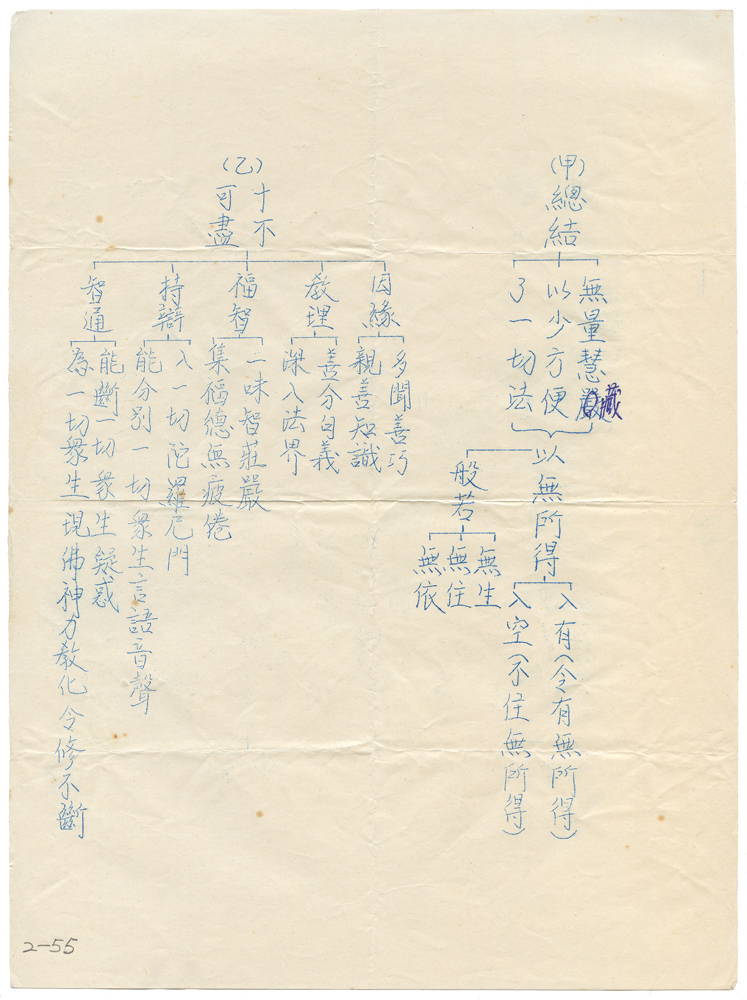 (甲)
總結
無量慧藏
以少方便
了一切法
以無所得
入有(令有無所得)
入空(不住無所得)
般若
無生
無住
無依
(乙)
十不
可盡
因緣
多聞善巧
親善知識
教理
善分句義
深入法界
福智
一味智莊嚴
集福德無疲倦
持辯
入一切陀羅尼門
能分別一切衆生言語音聲
智通
能斷一切衆生疑惑
為一切衆生現佛神力教化令修不斷
2-55